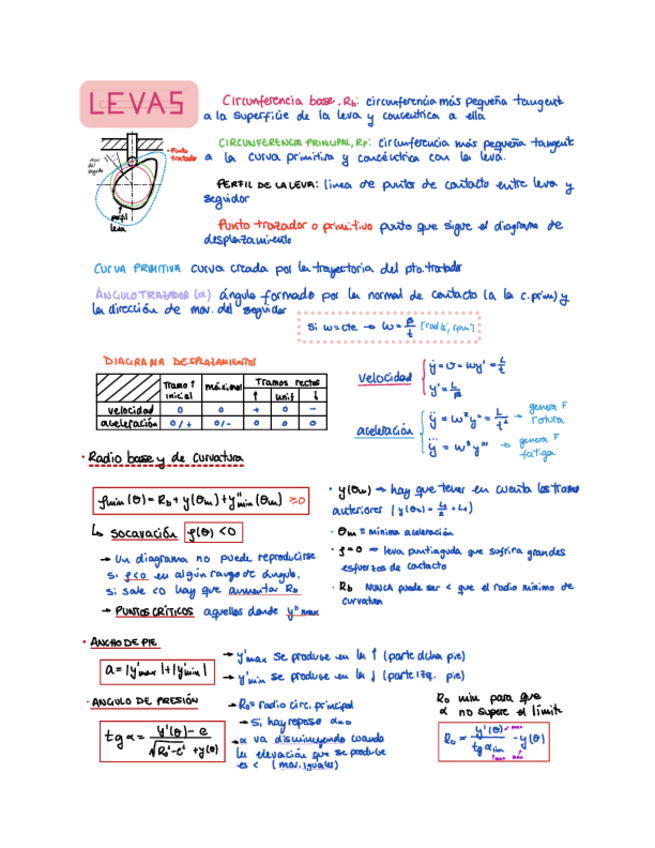 LEVAS
Circunferencia base, Rb: circunferencia más pequeña tangent
a la superficie de la leva y concentrica a ella
CIRCUNFERENCIA PRINCIPAL, Rp: circunferencia más pequeña tangent
a la curva primitiva y concéntrica con la leva.
• Punto
trazador
mov
del
seguido
perfil
leva
PERFIL DE LA LEVA: linea de puntos de contacto entre leva y
seguidor
Punto trazador o primitivo punto que sigue el diagrama de
desplazamiento
CURVA PRIMITIVA curva creada por la trayectoria del pto. trazador
ÁNGULO TRAZADOR (α) ángulo formado por la normal de contacto (a la c. prim) y
la dirección de mov. del seguidor
Si ω=cte → ω = β/t [rad/s, rpm]
DIAGRAMA DESPLAZAMIENTOS
Tramo ↑ inicial máximo Tramos rectos
↑ unif ↓
velocidad 0 0 + 0 -
aceleración 0/+ 0/- 0 0 0
velocidad ẏ = v = ωy' = L/t
y' = L/β
aceleración ÿ = ω²y'' = L/t² → genera F rotura
y⃛ = ω³y''' → genera F fatiga
• Radio base y de curvatura
ρmin (θ) = Rb + y(θm) + y''min (θm) ≥0
↳ socavación ρ(θ) < 0
→ Un diagrama no puede reproducirse
si ρ<0 en algún rango de ángulo.
si sale <0 hay que aumentar Rb
→ PUNTOS CRÍTICOS aquellos donde y'' max
• y(θm) → hay que tener en cuenta los tramos
anteriores
• θm = mínima aceleración
• ρ=0 → leva puntiaguda que sufrira grandes
esfuerzos de contacto
• Rb NUNCA puede ser < que el radio mínimo de
curvatura
• ANCHO DE PIE
a = |y'max| + |y'min|
→ y'max se produce en la ↑ (parte dcha pie)
→ y'min se produce en la ↓ (parte izq. pie)
• ANGULO DE PRESIÓN
tg α = y'(θ) - e / √R₀² - e² + y(θ)
→ R₀ = radio circ. principal
→ si hay reposo α=0
→ α va disminuyendo cuando
la elevación que se produce
es < (mov. iguales)
R₀ min para que
α no supere el límite
R₀ = y'(θ) max / tg α lim - y(θ)